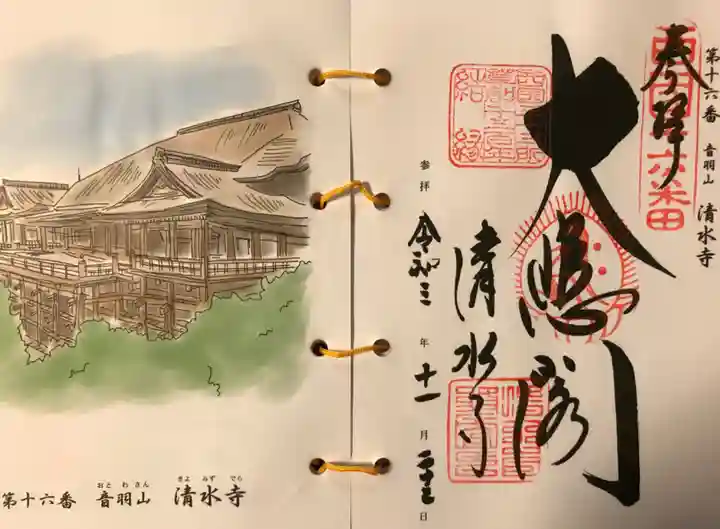 第十六番 音羽山 清水寺
奉拝
西国十六番
大悲閣
清水寺
参拝 令和三年十一月二十三日
結縁
おとわさん きよみずでら
第十六番 音羽山 清水寺